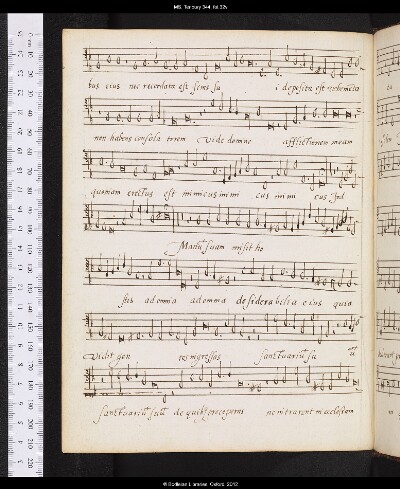 MS. Tenbury 344, fol. 32v
bus eius nec recordata est finis su i deposita est vehemēte
non habens consola torem Vide domine afflictionem meam
quoniam erectus est inimicus inimi cus inimi cus Jod
Manū suam misit ho
stis ad omnia ad omnia desiderabilia eius quia
Vidit gen tes ingressas sanctuariū su
sanctuariū suū de quibs preceperas ne intrarent in ecclesiam
© Bodleian Libraries, Oxford, 2012